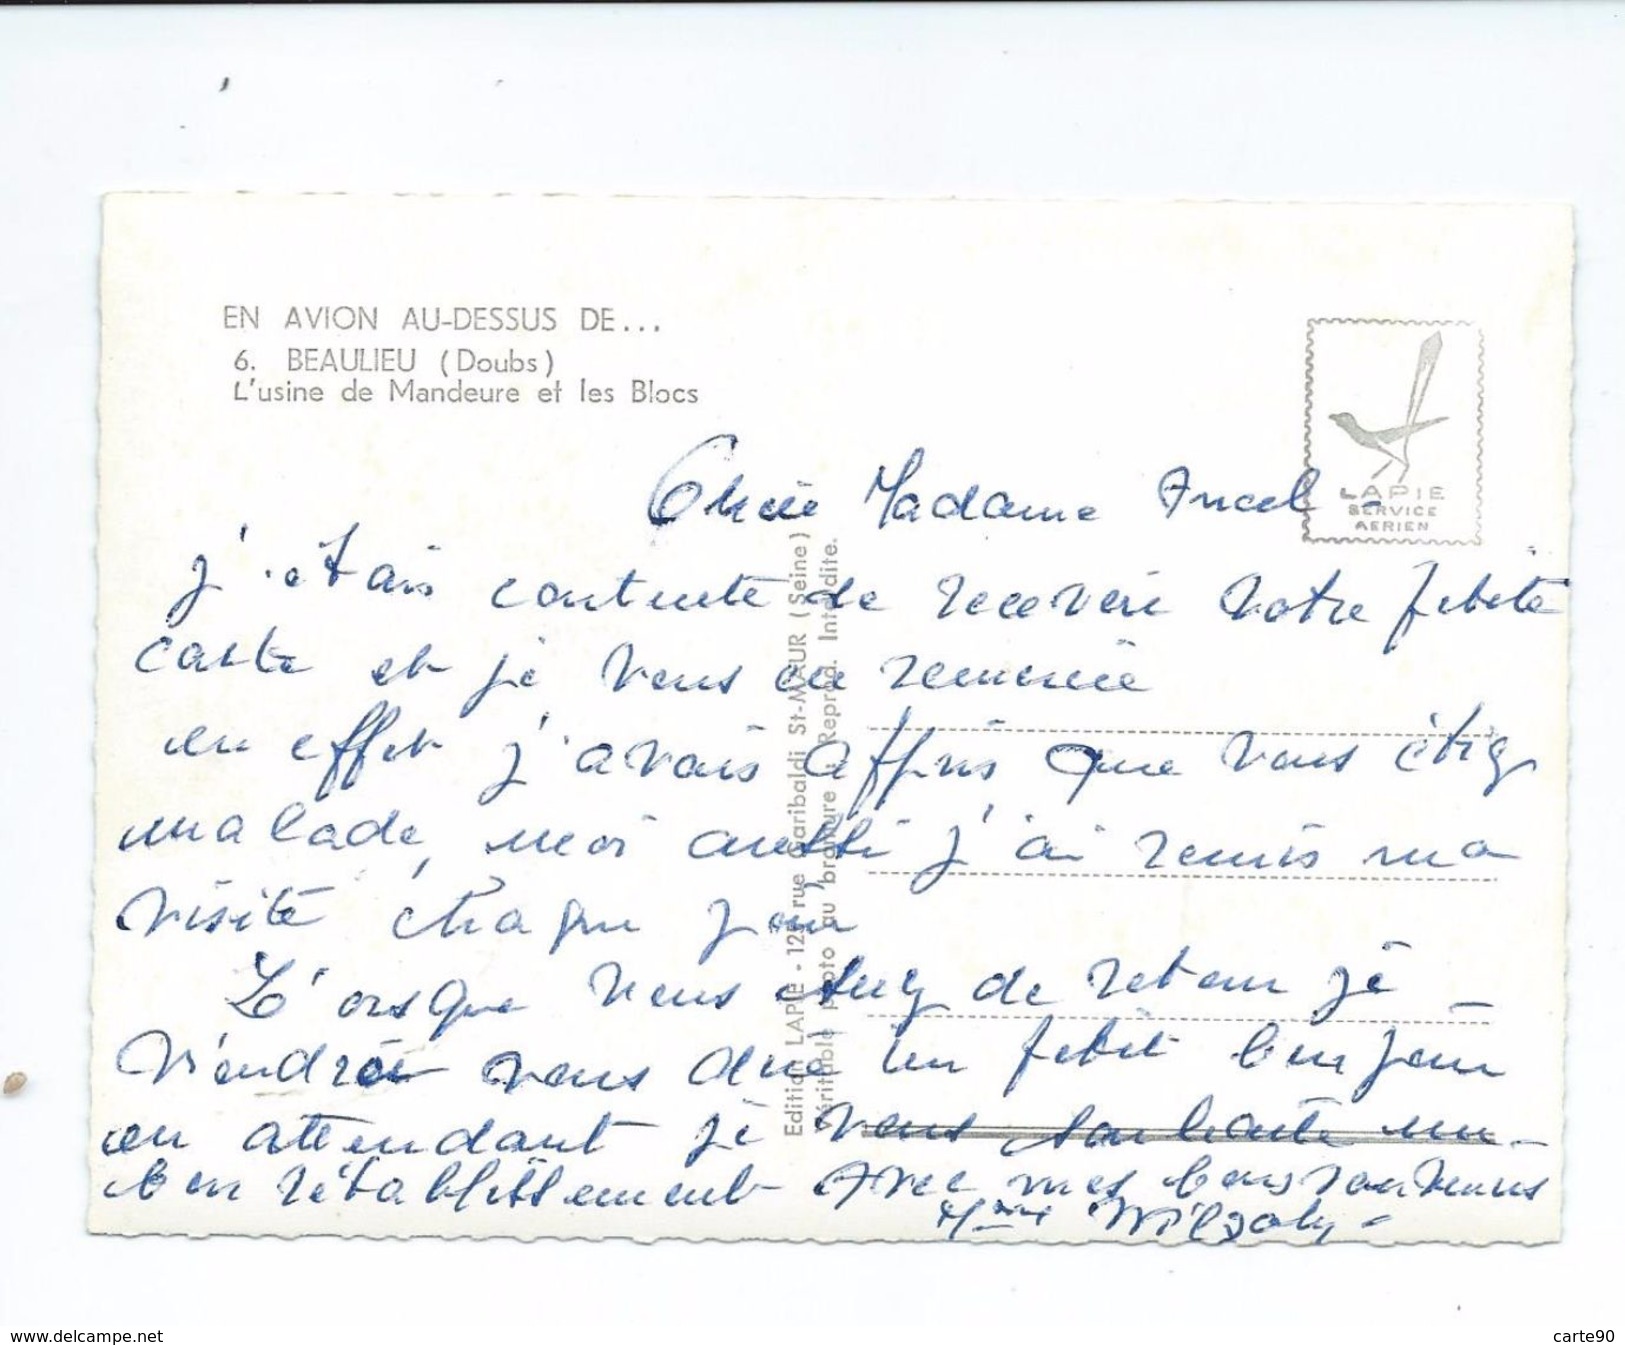 EN AVION AU-DESSUS DE...
6. BEAULIEU (Doubs)
L'usine de Mandeure et les Blocs
LAPIE
SERVICE
AERIEN
Edition LAPIE - 125 rue Garibaldi St-MAUR (Seine)
Véritable photo au bromure - Reprod. Interdite.
Chère Madame Ancel -
j'étais contente de recevoir votre petite
carte et je vous en remercie
en effet j'avais appris que vous étiez
malade, moi aussi j'ai remis ma
visite chaque jour
L'orsque vous serez de retour je
viendrai vous dire un petit bonjour
en attendant je vous souhaite un
bon rétablissement Avec mes bons souvenirs
Mme
www.delcampe.net
carte90